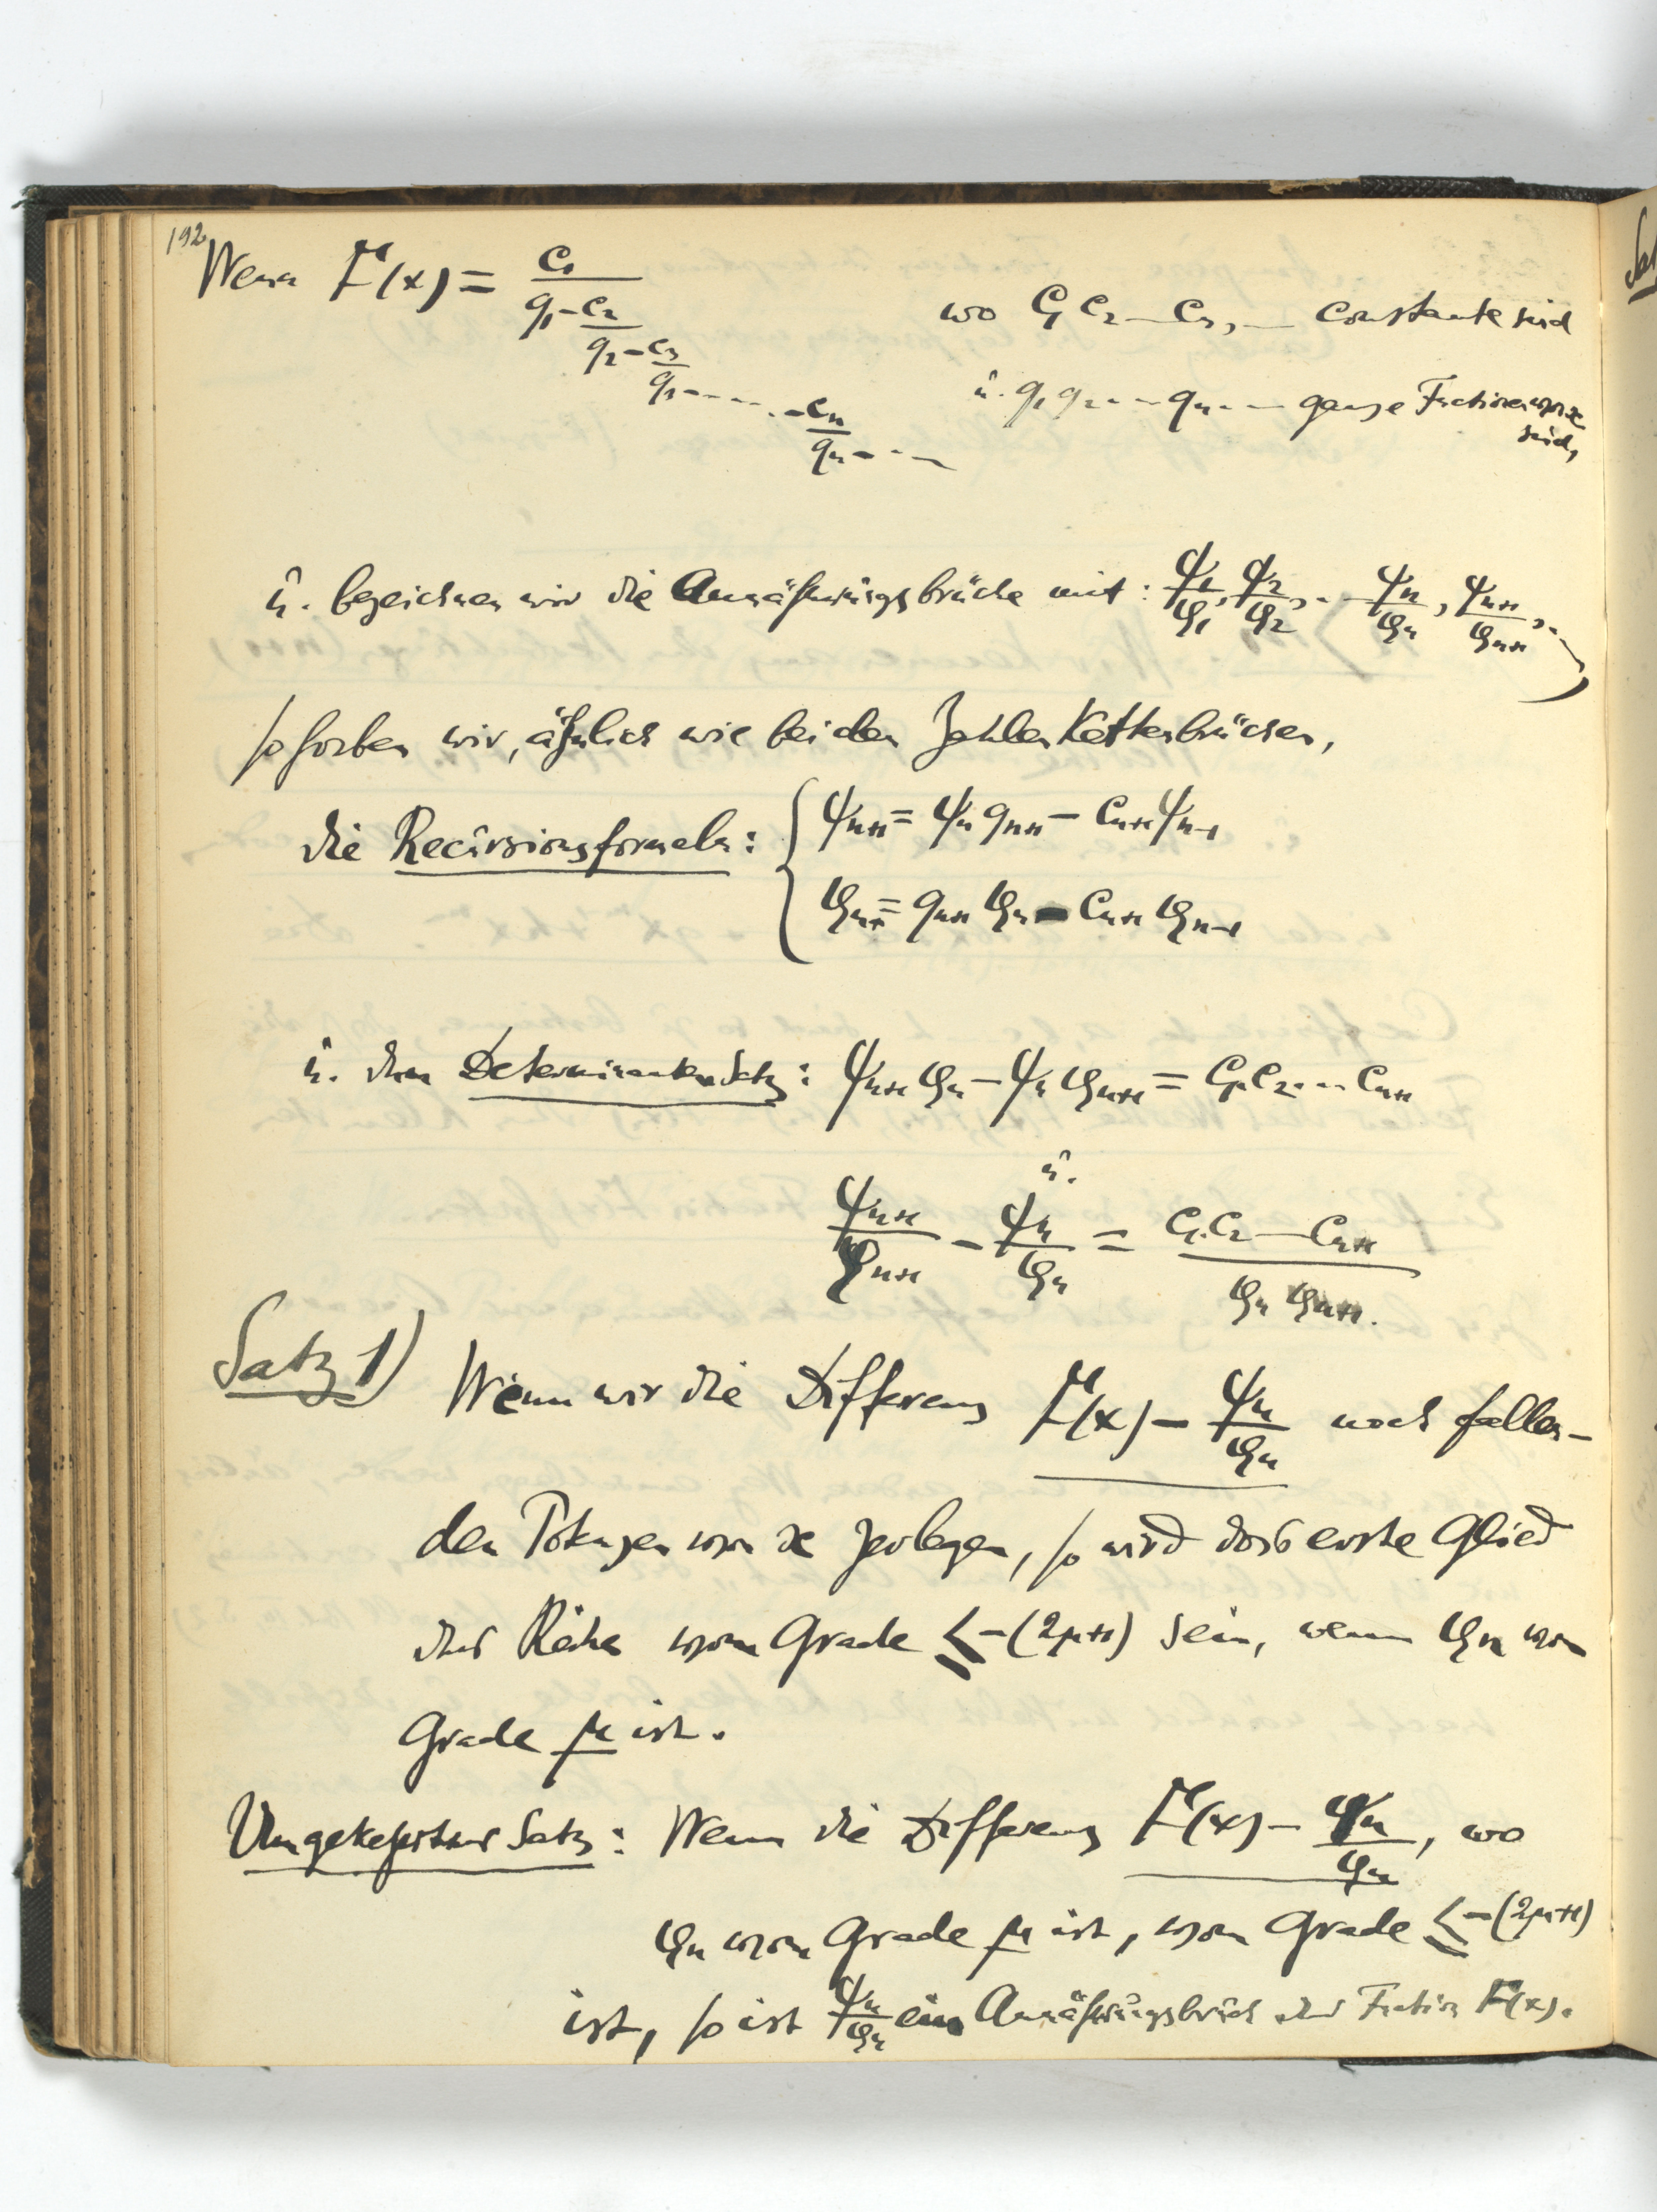 192
Wenn F(x) = c₁/(q₁ - c₂/(q₂ - c₃/(q₃ - .... - cₙ/(qₙ - ...
wo c₁ c₂ — cₙ, — constante sind
u. q₁ q₂ . - - qₙ . — ganze Functionen von x
sind,
u. bezeichnen wir die Annäherungsbrüche mit : ψ₁/φ₁, ψ₂/φ₂, . - ψₙ/φₙ, ψₙ₊₁/φₙ₊₁, ..
so haben wir, ähnlich wie bei den Zahlen Kettenbrüchen,
die Recursionsformeln : { ψₙ₊₁ = ψₙ qₙ₊₁ - cₙ₊₁ ψₙ₋₁
φₙ₊₁ = qₙ₊₁ φₙ - cₙ₊₁ φₙ₋₁
u. den Determinantensatz : ψₙ₊₁ φₙ - ψₙ φₙ₊₁ = c₁.c₂... cₙ₊₁
u.
ψₙ₊₁/φₙ₊₁ - ψₙ/φₙ = c₁.c₂ — cₙ₊₁ / φₙ φₙ₊₁.
Satz 1) Wenn wir die Differenz F(x) - ψₙ/φₙ nach fallen-
den Potenzen von x zerlegen, so wird das erste Glied
der Reihe vom Grade ≤ -(2μ+1) sein, wenn φₙ vom
Grade μ ist.
Umgekehrter Satz : Wenn die Differenz F(x) - ψₙ/φₙ, wo
φₙ vom Grade μ ist, vom Grade ≤ -(2μ+1)
ist, so ist ψₙ/φₙ ein Annäherungsbruch der Function F(x).